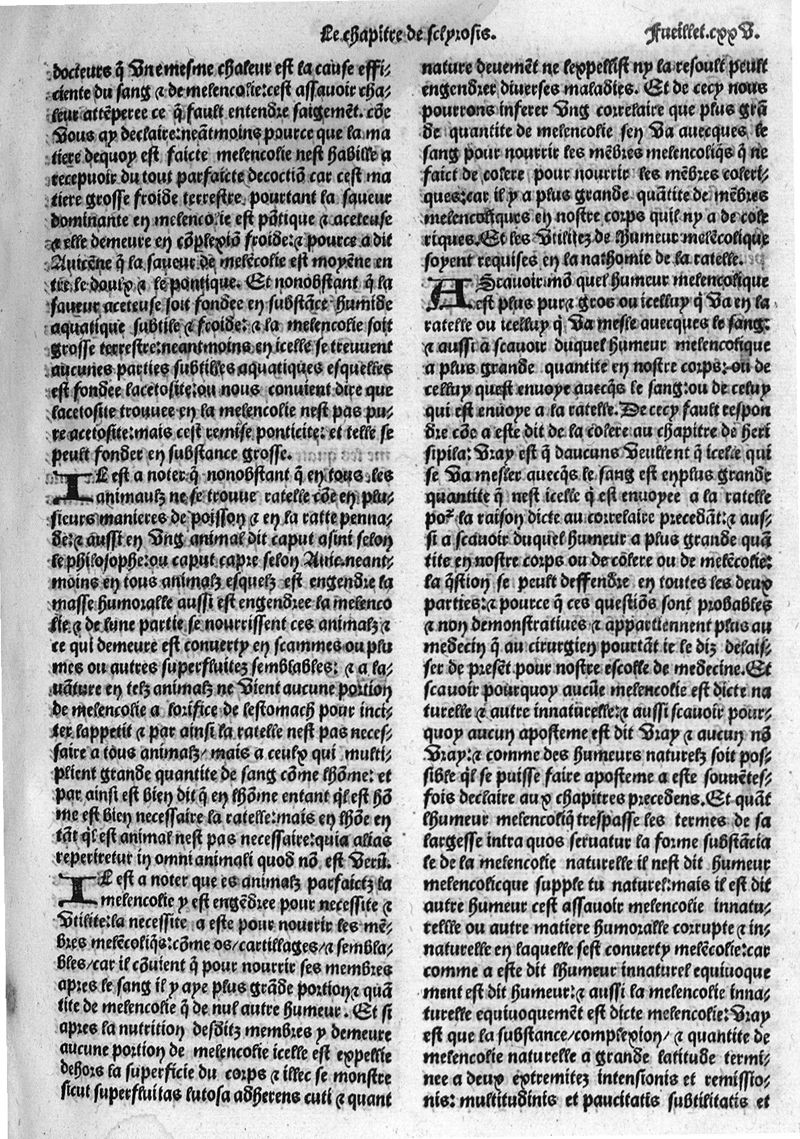 Le chapitre de sclyrosis.
Fueillet.cxxV.
docteurs q̃ Vne mesme chaleur est la cause effi-
ciente du sang ⁊ de melencolie: cest assauoir cha-
leur attẽperee ce q̃ fault entendre saigemẽt. cõe
Vous ay declaire: neãtmoins pource que la ma
tiere dequoy est faicte melencolie nest habille a
recepuoir du tout parfaicte decoctiõ car cest ma
tiere grosse froide terrestre, pourtant la saueur
dominante en melencolie est põtique ⁊ aceteuse
⁊ elle demeure en cõplexiõ froide: ⁊ pource a dit
Auicẽne q̃ la saueur de melẽcolie est moyẽne en
tre le doulx ⁊ le pontique. Et nonobstant q̃ la
saueur aceteuse soit fondee en substãce humide
aquatique subtile ⁊ froide: ⁊ la melencolie soit
grosse terrestre: neantmoins en icelle se treuuent
aucunes parties subtilles aquatiques esquelles
est fondee lacetosite: ou nous conuient dire que
lacetosite trouuee en la melencolie nest pas pu-
re acetosite: mais cest remise ponticite: et telle se
peult fonder en substance grosse.
IL est a noter q̃ nonobstant q̃ en tous les
animaulz ne se trouue ratelle cõe en plu-
sieurs manieres de poisson ⁊ en la ratte penna-
de: ⁊ aussi en Vng animal dit caput asini selon
le philosophe: ou caput capre selon Auic. neant-
moins en tous animalz esquelz est engendre la
masse humoralle aussi est engendree la melenco
lie, ⁊ de lune partie se nourrissent ces animalz ⁊
ce qui demeure est conuerty en scammes ou plu
mes ou autres superfluitez semblables: ⁊ a la-
uãture en telz animalz ne Vient aucune portion
de melencolie a lorifice de lestomach pour inci-
ter lappetit ⁊ par ainsi la ratelle nest pas neces-
saire a tous animalz/ mais a ceulx qui multi-
plient grande quantite de sang cõme lhõme: et
par ainsi est bien dit q̃ en lhõme entant q̃l est hõ
me est bien necessaire la ratelle: mais en lhõe en
tãt q̃l est animal nest pas necessaire: quia alias
reperiretur in omni animali quod nõ est Verũ.
IL est a noter que es animalz parfaictz la
melencolie y est engẽdree pour necessite ⁊
Vtilite: la necessite a este pour nourrir les mẽ-
bres melẽcoliq̃s: cõme os/cartillages/⁊ sembla-
bles/car il cõuient q̃ pour nourrir ses membres
apres le sang il y aye plus grãde portion ⁊ quã
tite de melencolie q̃ de nul autre humeur. Et si
apres la nutrition desditz membres y demeure
aucune portion de melencolie icelle est expellie
dehors la superficie du corps ⁊ illec se monstre
sicut superfluitas lutosa adherens cuti ⁊ quant
nature deuement ne lexpellist ny la resoult peult
engendrer diuerses maladies. Et de cecy nous
pourrons inferer Vng correlaire que plus grã
de quantite de melencolie sen Va auecques le
sang pour nourrir les mẽbres melencoliq̃s q̃ ne
faict de colere pour nourrir les mẽbres coleri-
ques: car il y a plus grande quãtite de mẽbres
melencoliques en nostre corps quil ny a de cole
riques. Et les Vtilitez de lhumeur melẽcolique
soyent requises en la nathomie de la ratelle.
AScauoir mõ quel humeur melencolique
est plus pur ⁊ gros ou icelluy q̃ Va en la
ratelle ou icelluy q̃ Va mesle auecques le sang:
⁊ aussi a scauoir duquel humeur melencolique
a plus grande quantite en nostre corps: ou de
celluy quest enuoye auecq̃s le sang: ou de celuy
qui est enuoye a la ratelle. De cecy fault respon
dre cõe a este dit de la colere au chapitre de heri
sipila: Vray est q̃ daucuns Veullent q̃ icelle qui
se Va mesler auecq̃s le sang est enplus grande
quantite q̃ nest icelle q̃ est enuoyee a la ratelle
por la raison dicte au correlaire precedãt: ⁊ aus-
si a scauoir duquel humeur a plus grande quã
tite en nostre corps ou de colere ou de melẽcolie:
la q̃stion se peult deffendre en toutes les deux
parties: ⁊ pource q̃ ces questiõs sont probables
⁊ non demonstratiues ⁊ appartiennent plus au
medecin q̃ au cirurgien pourtãt ie le diz delais-
ser de presẽt pour nostre escolle de medecine. Et
scauoir pourquoy aucũe melencolie est dicte na
turelle ⁊ autre innaturelle: ⁊ aussi scauoir pour-
quoy aucun aposteme est dit Vray ⁊ aucun nõ
Vray: ⁊ comme des humeurs naturelz soit pos-
sible q̃l se puisse faire aposteme a este souuẽtes-
fois declaire aux chapitres precedens. Et quãt
lhumeur melencoliq̃ trespasse les termes de sa
largesse intra quos seruatur la forme substãcia
le de la melencolie naturelle il nest dit humeur
melencolicque supple tu naturel: mais il est dit
autre humeur cest assauoir melencolie innatu-
relle ou autre matiere humoralle corrupte ⁊ in-
naturelle en laquelle sest conuerty melẽcolie: car
comme a este dit lhumeur innaturel equiuoque
ment est dit humeur: ⁊ aussi la melencolie inna-
turelle equiuoquement est dicte melencolie: Vray
est que la substance/complexion/⁊ quantite de
melencolie naturelle a grande latitude termi-
nee a deux extremitez intensionis et remissio-
nis: multitudinis et paucitatis subtilitatis et